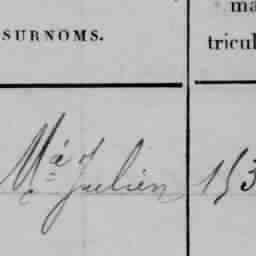 SURNOMS.
ma
tricul
Julien 153